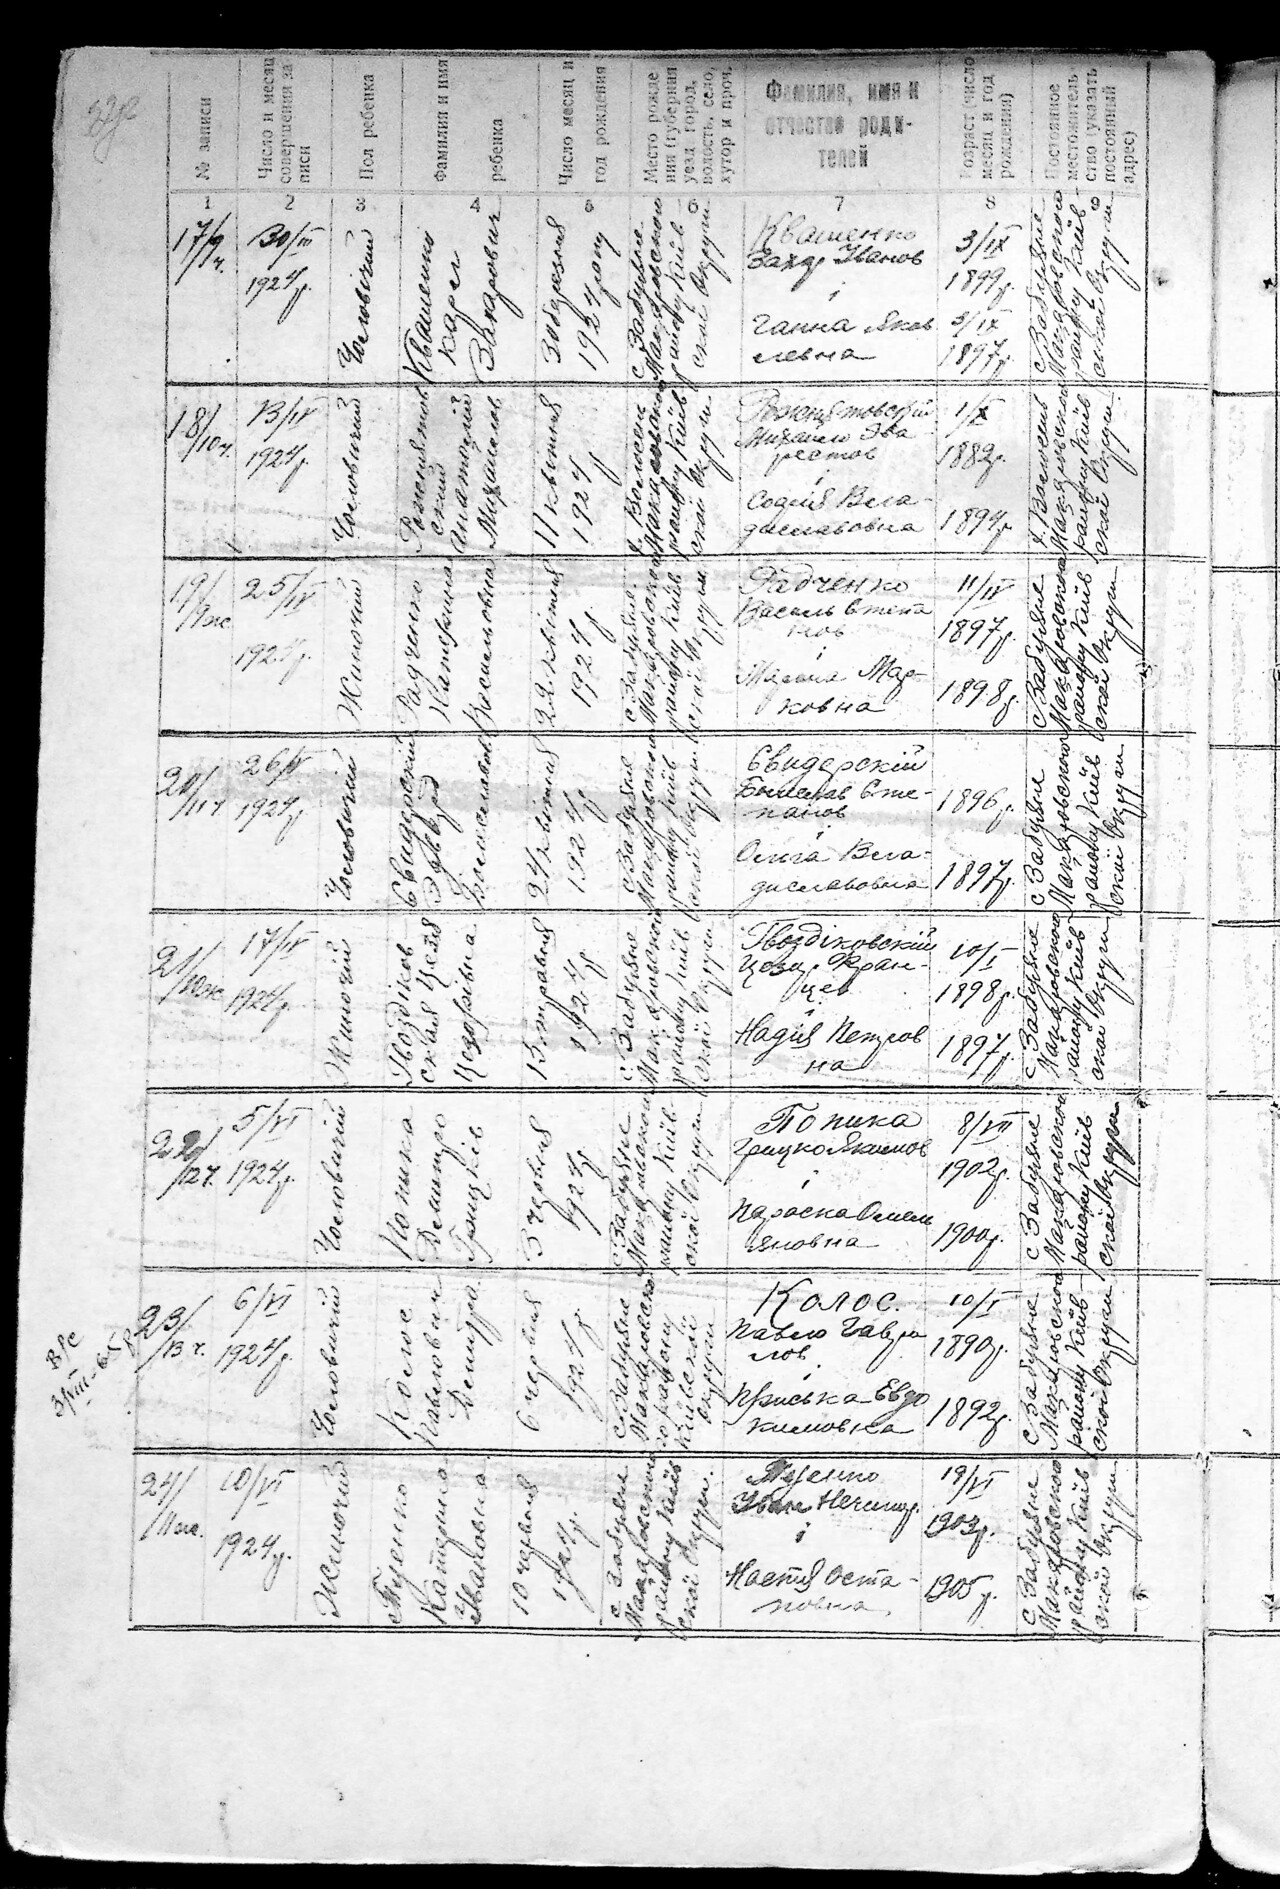 № записи
Число и месяц
совершения за
писи
Пол ребенка
Фамилия и имя
ребенка
Число месяц и
год рождения
Место рожде
ния (губерния
уезд город,
волость, село,
хутор и проч.
Фамилия, имя и
отчество роди-
телей
Возраст (число
месяц и год
рождения)
Постоянное
местожитель-
ство (указать
постоянный
адрес)
1 2 3 4 5 6 7 8 9
17/9ч.
30/III
1924р.
Чоловічий
Квашенко
Карл
Захарович
30 березня
1924 року
с Забуяне
Макаровского
району Київ
ской Округи
Квашенко
Захар Іванов
і
Ганна Яков
левна
3/IX
1899р.
3/IX
1897р.
с Забуяне
Макаровского
району Київ-
ской Округи
18/10ч.
13/IV
1924р.
Чоловичий
Анатолій
Михайлов
11 квітня
1924р
Макаровского
району Київ
ской Округи
Михайло Эва-
рестов
і
Софія Вла-
диславовна
1/X
1882р.
1894р
Макаровского
району Київ
ской Округи
19/9ж
25/IV
1924р.
Жиночий
Радченко
Катерина
Васильовна
22 квітня
1924р.
с Забуяне
Макаровского
району Київ
ской Округи
Радченко
Василь Степа
нов
і
Марія Мар-
ковна
11/IV
1897р.
1898р
с Забуяне
Макаровского
району Київ
ской Округи
20/11ч
26/IV
1924р
Чоловичий
Свидерский
Эдвард
Болеславов
24 квітня
1924р
с Забуяне
Макаровского
району Київ
ской Округи
Свидерскій
Болеслав Сте-
панов
і
Ольга Вла-
диславовна
1896р
1897р.
с Забуяне
Макаровского
району Київ
ской Округи
21/10ж
17/IV
1924р.
Жиночий
Гвоздіков-
ская Цезя
Цезарівна
15 травня
1924р
с Забуяне
Макаровского
району Київ
ской Округи
Гвоздіковскій
Цезар Фран-
цев
і
Надія Петров
на
10/I
1898р.
1897р.
с Забуяне
Макаровского
району Київ
ской Округи
22/12ч.
5/VI
1924р.
Чоловичій
Попика
Дмитро
Грицків
3 червня
1924р
с Забуяне
Макаровского
району Київ-
ской Округи
Попика
Грицко Якимов
і
Параска Омель
яновна
8/VII
1902р.
1900р.
с Забуяне
Макаровской
району Київ
ской Округи
В/С
23/13ч.
6/VI
1924р.
Чоловичій
Колос
Павлович
Дмитро
6 червня
1924р.
с Забуяне
Макаровско
го району
Київской
Округи
Колос.
Павло Гаври
лов
і
Приська Евдо
кимовна
10/I
1890р.
1892р.
с Забуяне
Макаровской
району Київ-
ской Округи
24/11ж.
10/VI
1924р.
Жиночій
Катерина
Ивановна
10 червня
1924р.
с Забуяне
Макаровской
району Київ
ской Округи.
і
Настя Оста-
повна
19/VI
1903р.
1905р.
с Забуяне
Макаровской
району Київ
ской Округи